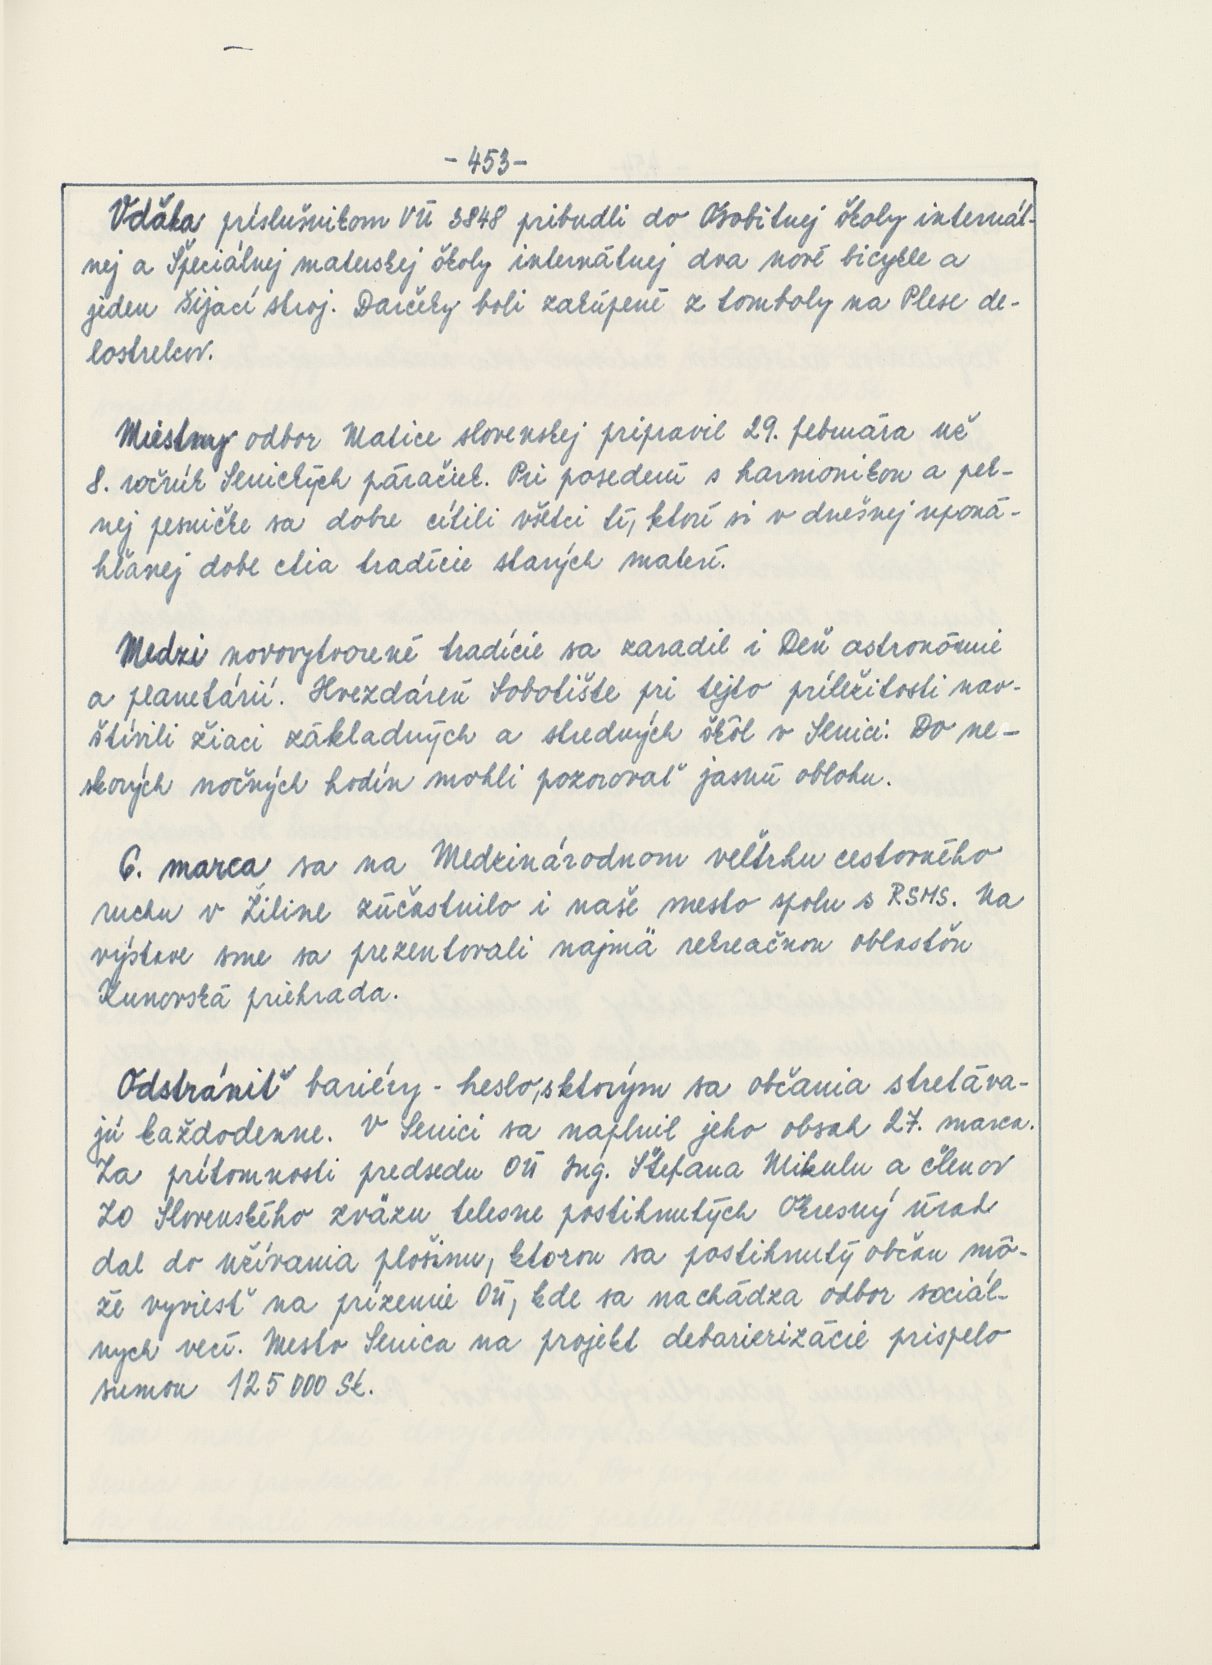 - 453 -
Vďaka príslušníkom VÚ 3848 pribudli do Osobitnej školy internát-
nej a Špeciálnej materskej školy internátnej dva nové bicykle a
jeden šijací stroj. Darčeky boli zakúpené z tomboly na Plese de-
lostrelcov.
Miestny odbor Matice slovenskej pripravil 29. februára už
8. ročník Senických páračiek. Pri posedení s harmonikou a pek-
nej pesničke sa dobre cítili všetci tí, ktorí si v dnešnej uponá-
hľanej dobe ctia tradície starých materí.
Medzi novovytvorené tradície sa zaradil i Deň astronómie
a planetárií. Hvezdáreň Sobotište pri tejto príležitosti nav-
štívili žiaci základných a stredných škôl v Senici. Do ne-
skorých nočných hodín mohli pozorovať jasnú oblohu.
6. marca sa na Medzinárodnom veľtrhu cestovného
ruchu v Žiline zúčastnilo i naše mesto spolu s RSMS. Na
výstave sme sa prezentovali najmä rekreačnou oblasťou
Kunovská priehrada.
Odstrániť bariéry - heslo, s ktorým sa občania stretáva-
jú každodenne. V Senici sa naplnil jeho obsah 27. marca.
Za prítomnosti predsedu OÚ Ing. Štefana Mikulu a členov
ZO Slovenského zväzu telesne postihnutých Okresný úrad
dal do užívania plošinu, ktorou sa postihnutý občan mô-
že vyviesť na prízemie OÚ, kde sa nachádza odbor sociál-
nych vecí. Mesto Senica na projekt debarierizácie prispelo
sumou 125 000 Sk.